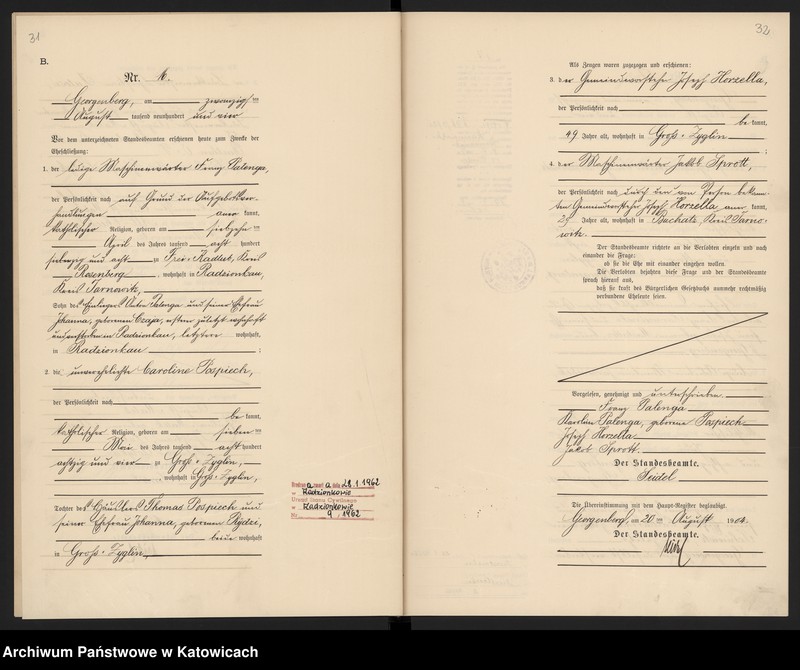 31
B.
Nr. 16.
Georgenberg, am zwanzigsten
August tausend neunhundert und vier
Vor dem unterzeichneten Standesbeamten erschienen heute zum Zwecke der
Eheschließung:
1. der ledige Maschinenwärter Franz Palenga,
der Persönlichkeit nach auf Grund der Aufgebotsver-
handlungen aner kannt,
katholischer Religion, geboren am siebzehn ten
April des Jahres tausend acht hundert
siebenzig und acht zu Frei-Kadlub, Kreis
Rosenberg, wohnhaft in Radzionkau,
Kreis Tarnowitz,
Sohn des Einliegers Anton Palenga und seiner Ehefrau
Johanna, geborenen Czaja, ersterer zuletzt wohnhaft
und verstorben in Radzionkau, letztere wohnhaft
in Radzionkau;
2. die unverehelichte Caroline Pospiech,
der Persönlichkeit nach
be kannt,
katholischer Religion, geboren am sieben ten
Mai des Jahres tausend acht hundert
achtzig und vier zu Groß-Zyglin,
, wohnhaft in Groß-Zyglin,
Tochter des Häuslers Thomas Pospiech und
seiner Ehefrau Johanna, geborenen Rydzi,
beide wohnhaft
in Groß-Zyglin
28.1.1962
w Radzionkowie
Urząd Stanu Cywilnego
w Radzionkowie
Nr. 9/1962
32
Als Zeugen waren zugezogen und erschienen:
3. der Gemeindevorsteher Joseph Horzella,
der Persönlichkeit nach
be kannt,
49 Jahre alt, wohnhaft in Groß-Zyglin
;
4. der Maschinenwärter Jakob Sprott,
der Persönlichkeit nach durch den von Person bekann-
ten Gemeindevorsteher Joseph Horzella aner kannt,
25 Jahre alt, wohnhaft in Buchatz, Kreis Tarno-
witz.
Der Standesbeamte richtete an die Verlobten einzeln und nach
einander die Frage:
ob sie die Ehe mit einander eingehen wollen.
Die Verlobten bejahten diese Frage und der Standesbeamte
sprach hierauf aus,
daß sie kraft des Bürgerlichen Gesetzbuchs nunmehr rechtmäßig
verbundene Eheleute seien.
Vorgelesen, genehmigt und unterschrieben
Franz Palenga
Karoline Palenga, geborene Pospiech
Joseph Horzella
Jakob Sprott.
Der Standesbeamte.
Seidel
Die Übereinstimmung mit dem Haupt-Register beglaubigt.
Georgenberg, am 20 ten August 1904.
Der Standesbeamte.
Archiwum Państwowe w Katowicach